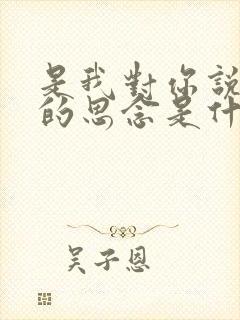 是我對你說
的思念是什
吳子恩